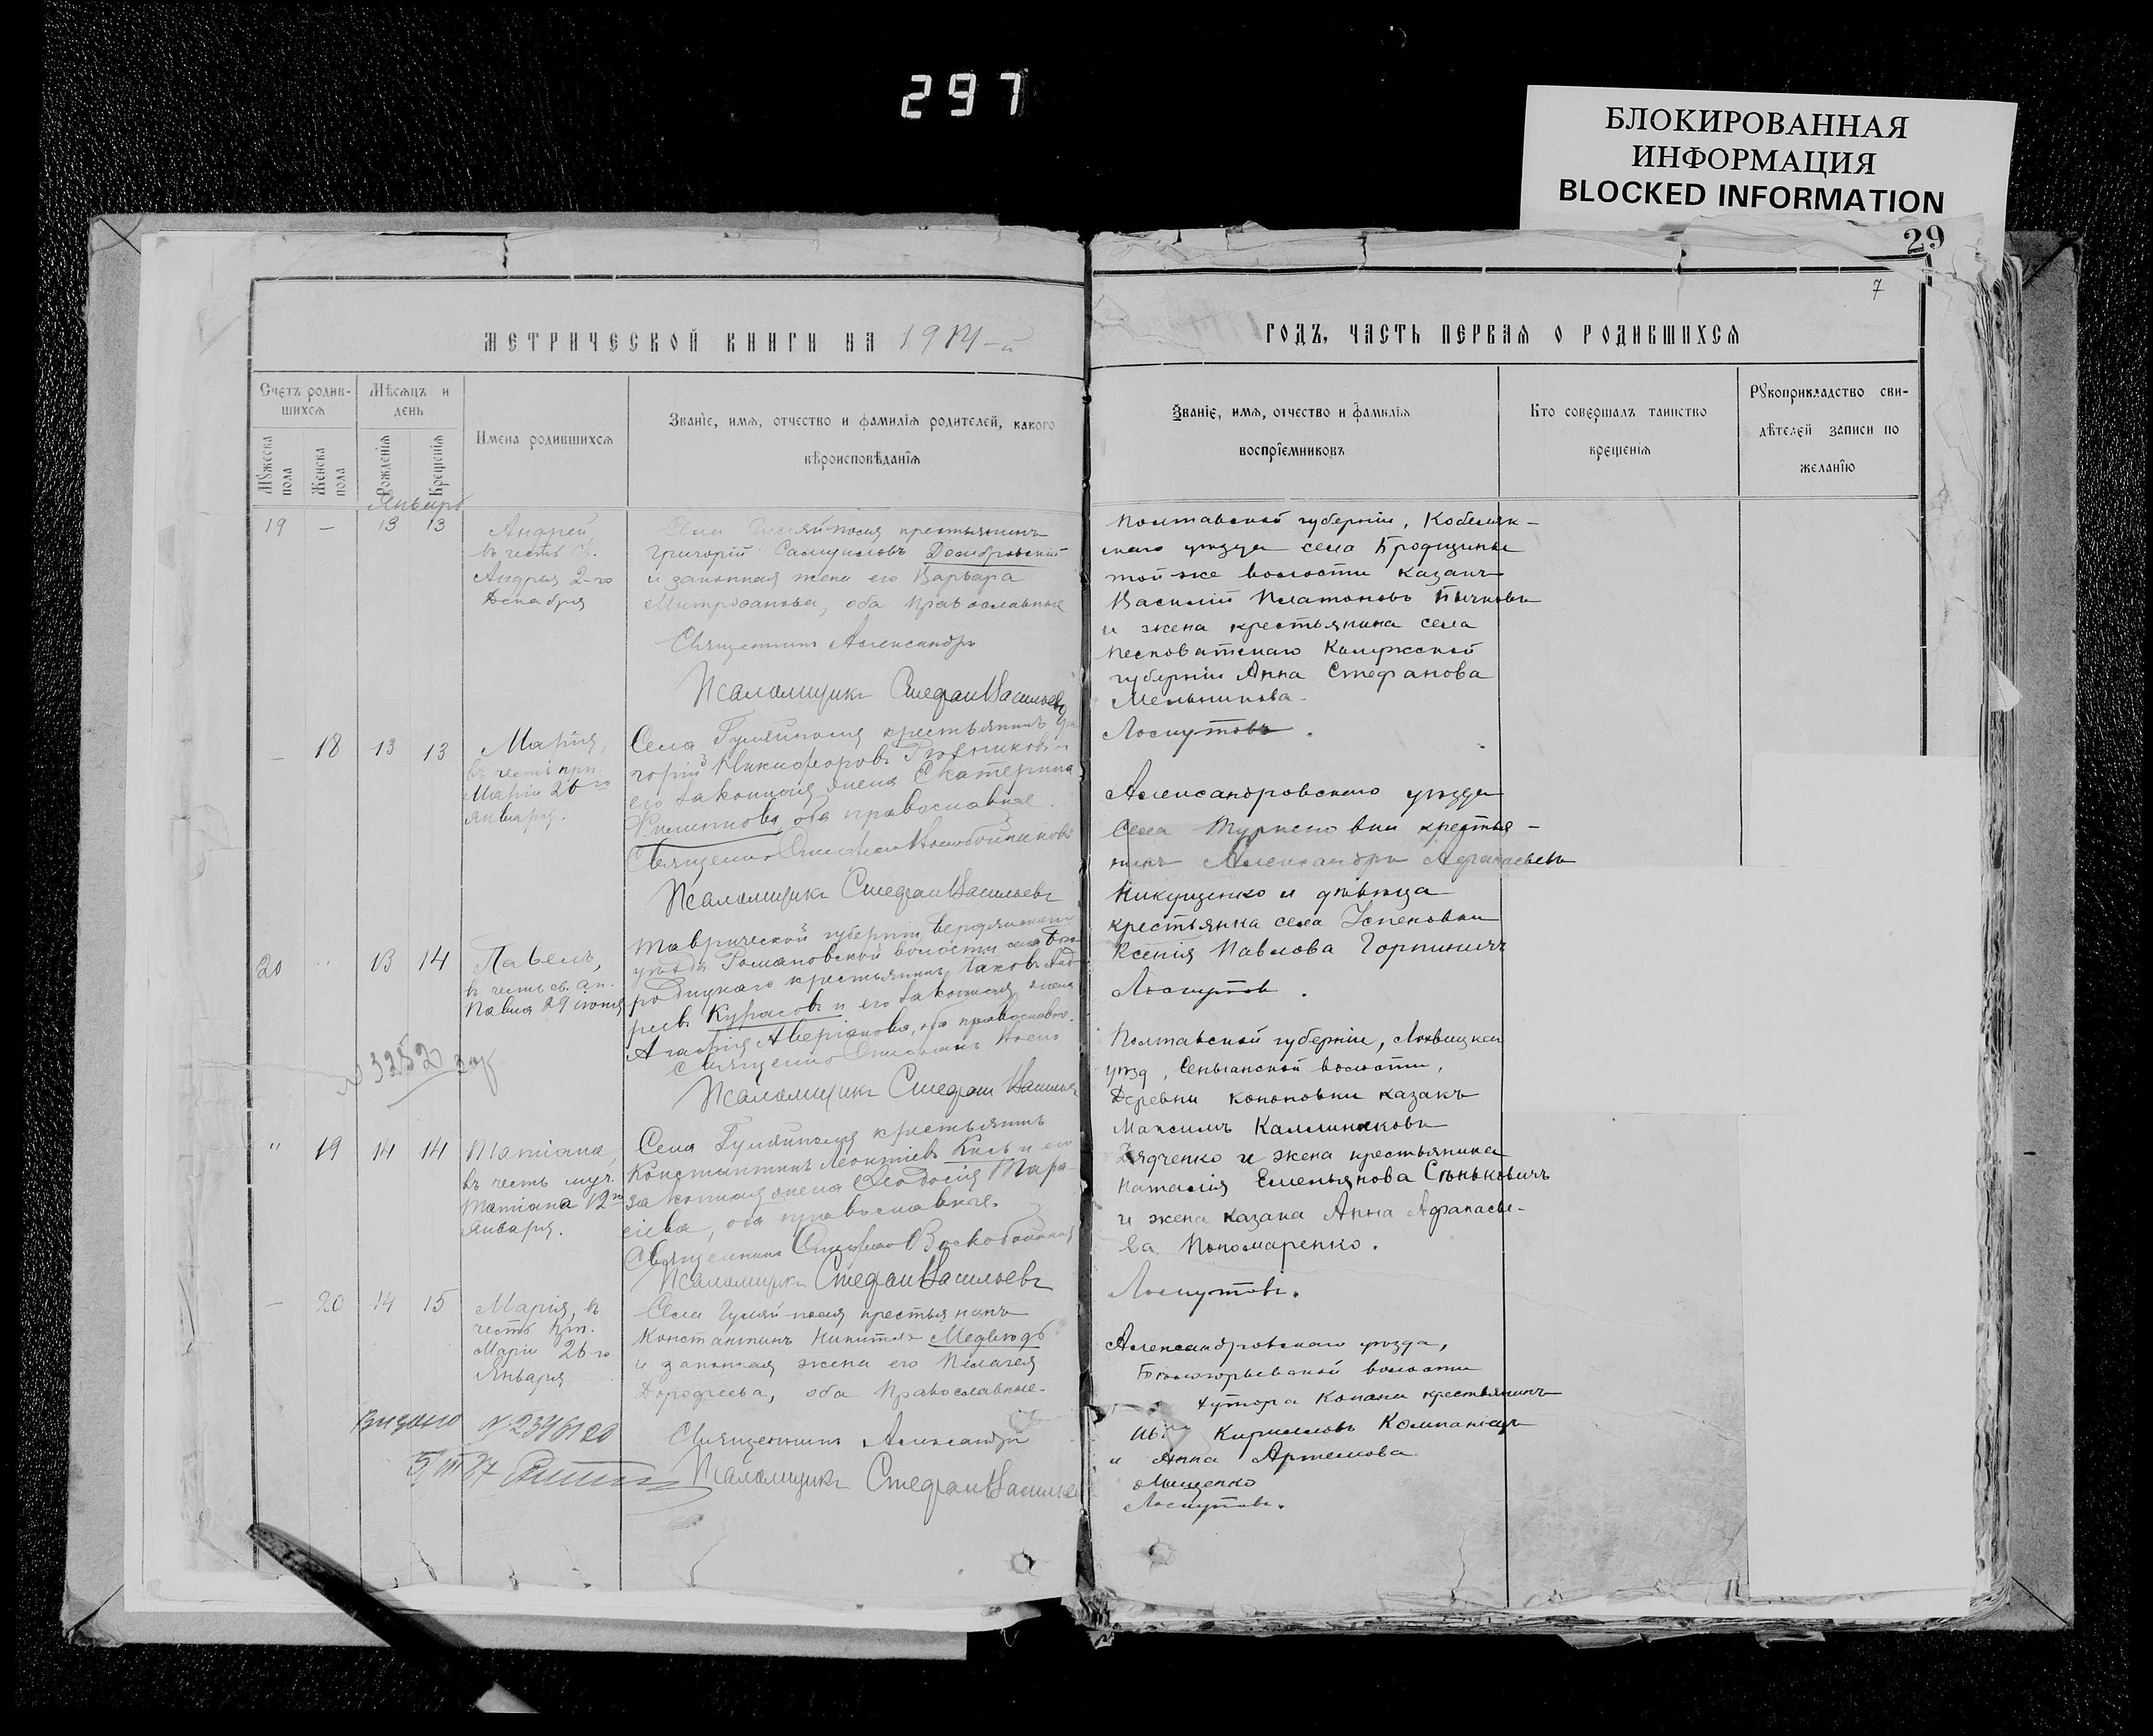 297
БЛОКИРОВАННАЯ
ИНФОРМАЦИЯ
BLOCKED INFORMATION
29
7
МЕТРИЧЕСКОЙ КНИГИ НА 1914-й
ГОДЪ, ЧАСТЬ ПЕРВАЯ О РОДИВШИХСЯ
Счетъ родив-
шихся
Мѣсяцъ и
день
Имена родившихся
Званіе, имя, отчество и фамилія родителей, какого
вѣроисповѣданія
Мужеска
пола
Женска
пола
Рожденія
Крещенія
Званіе, имя, отчество и фамилія
воспріемниковъ
Кто совершалъ таинство
крещенія
Рукоприкладство сви-
дѣтелей записи по
желанію
Январь
19 – 13 13
Андрей
въ честь Св.
Андрея 2-го
Декабря
Села Гуляйполя крестьянинъ
Григорій Самуиловъ Домбровскій
и законная жена его Варвара
Митрофанова, оба православные
Священникъ Александръ
Псаломщикъ Стефанъ Васильевъ
Полтавской губерніи, Кобеляк-
скаго уѣзда села Бродщины
той-же волости казакъ
Василій Платоновъ Бычковъ
и жена крестьянина села
Песковатскаго Калужской
губерніи Анна Стефанова
Мельникова.
Лоскутовъ.
– 18 13 13
Марія,
въ честь прп.
Маріи 26-го
января.
Села Гуляйполя крестьянинъ Гри-
горій Никифоровъ
его законная жена Екатерина
Филиппова, оба православные.
Псаломщикъ Стефанъ Васильевъ
Александровскаго уѣзда
Села Туркеновки крестья-
нинъ Александръ Афанасьевъ
Никущенко и дѣвица
крестьянка села Успеновки
Ксенія Павлова Горпиничъ
Лоскутов.
20 " 13 14
Павелъ,
въ честь св. ап.
Павла 29 іюня
Таврической губерніи, Бердянскаго
уѣзда Романовской волости села Бого-
родицкаго крестьянинъ Іаковъ
Курасовъ и его законная жена
Агафія Аверіанова, оба православн.
Псаломщикъ Стефанъ Васильев
Полтавской губерніи, Лохвицкаго
уѣзд, Сенчанской волости,
Деревни Кононовки казакъ
Максимъ Каллиниковъ
Дядченко и жена крестьянина
Наталія Емельянова Сѣньковичъ
и жена казака Анна Афанасье-
ва Пономаренко.
Лоскутовъ.
№ 3252
" 19 14 14
Татіана,
въ честь муч.
Татіана 12го
Января.
Села Гуляйполя крестьянинъ
Константинъ Леонтіевъ Кись и его
законная жена Ѳеодосія Тара-
сіева, оба православные.
Псаломщикъ Стефанъ Васильевъ
– 20 14 15
Марія, въ
честь Прп.
Маріи 26-го
Января
Села Гуляй-поля крестьянинъ
Константинъ Никитинъ Медвѣдь
и законная жена его Пелагея
Дорофеева, оба Православные.
Священникъ Александръ
Псаломщикъ Стефанъ Васильев
Александровскаго уѣзда,
волости
хутора Копани крестьянинъ
Кирилловъ Компаніецъ
и Анна Артемова
Мищенко
Лоскутовъ.
Выдано